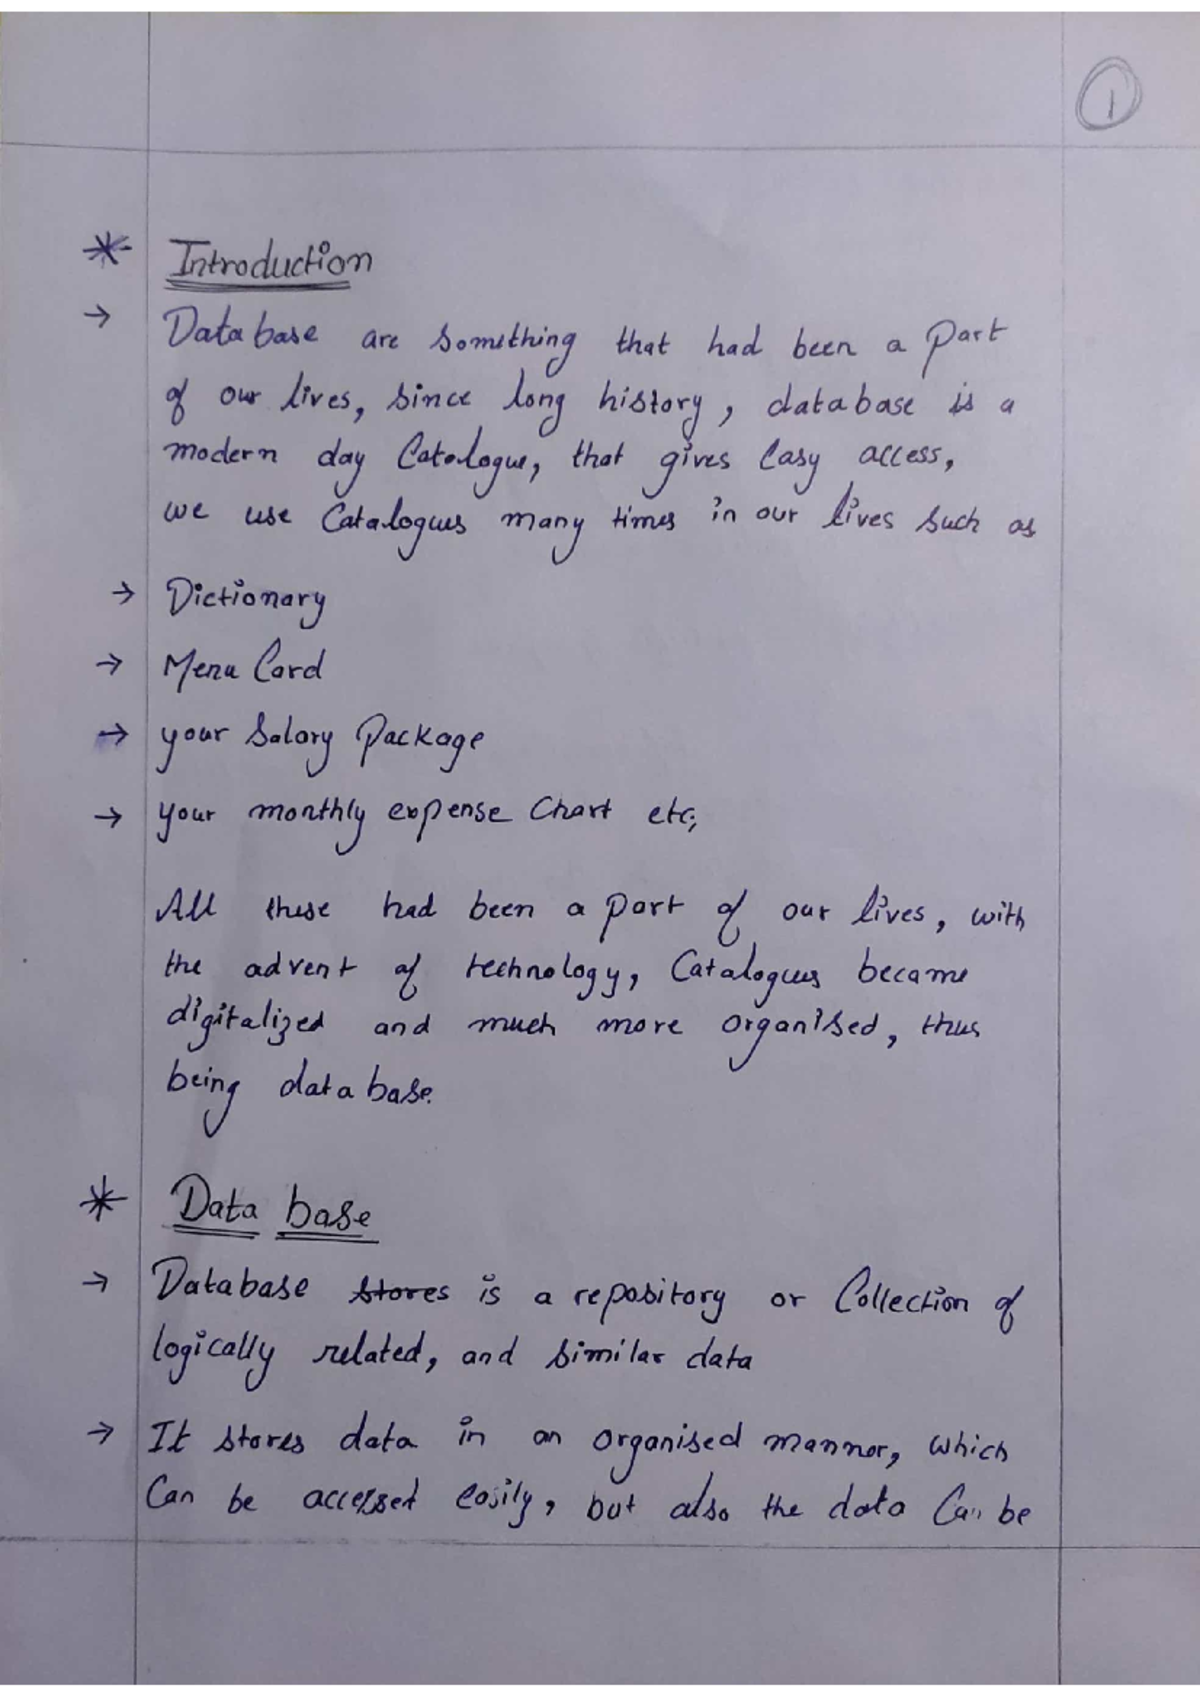 1
* Introduction
→ Database are something that had been a part
of our lives, since long history, database is a
modern day Catalogue, that gives Easy access,
we use Catalogues many times in our lives such as
→ Dictionary
→ Menu Card
→ your Salary Package
→ your monthly expense Chart etc;
All these had been a part of our lives, with
the advent of technology, Catalogues became
digitalized and much more organised, thus
being database.
* Data base
→ Database stores is a repository or Collection of
logically related, and similar data
→ It stores data in an organised mannor, which
Can be accessed easily, but also the data Can be